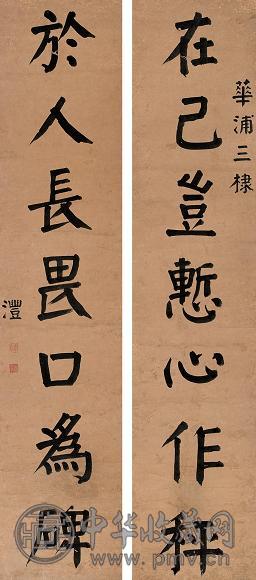 華浦三棣
在己豈慙心作秤
於人長畏口為碑
澧
中华收藏网
www.pmv.cn